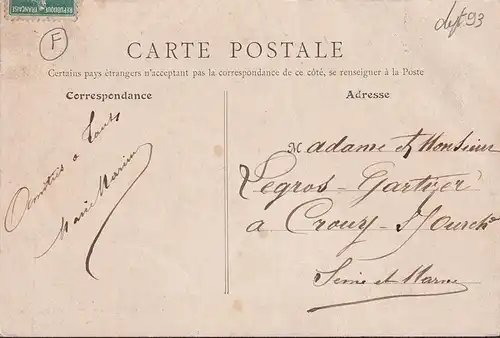 REPUBLIQUE FRANCAISE
F
dept 93
CARTE POSTALE
Certains pays étrangers n'acceptant pas la correspondance de ce côté, se renseigner à la Poste
Correspondance
Amitiés a Tous
Marie
Adresse
Madame et Monsieur
Legros
a Crouy-s/Ourcq
Seine et Marne